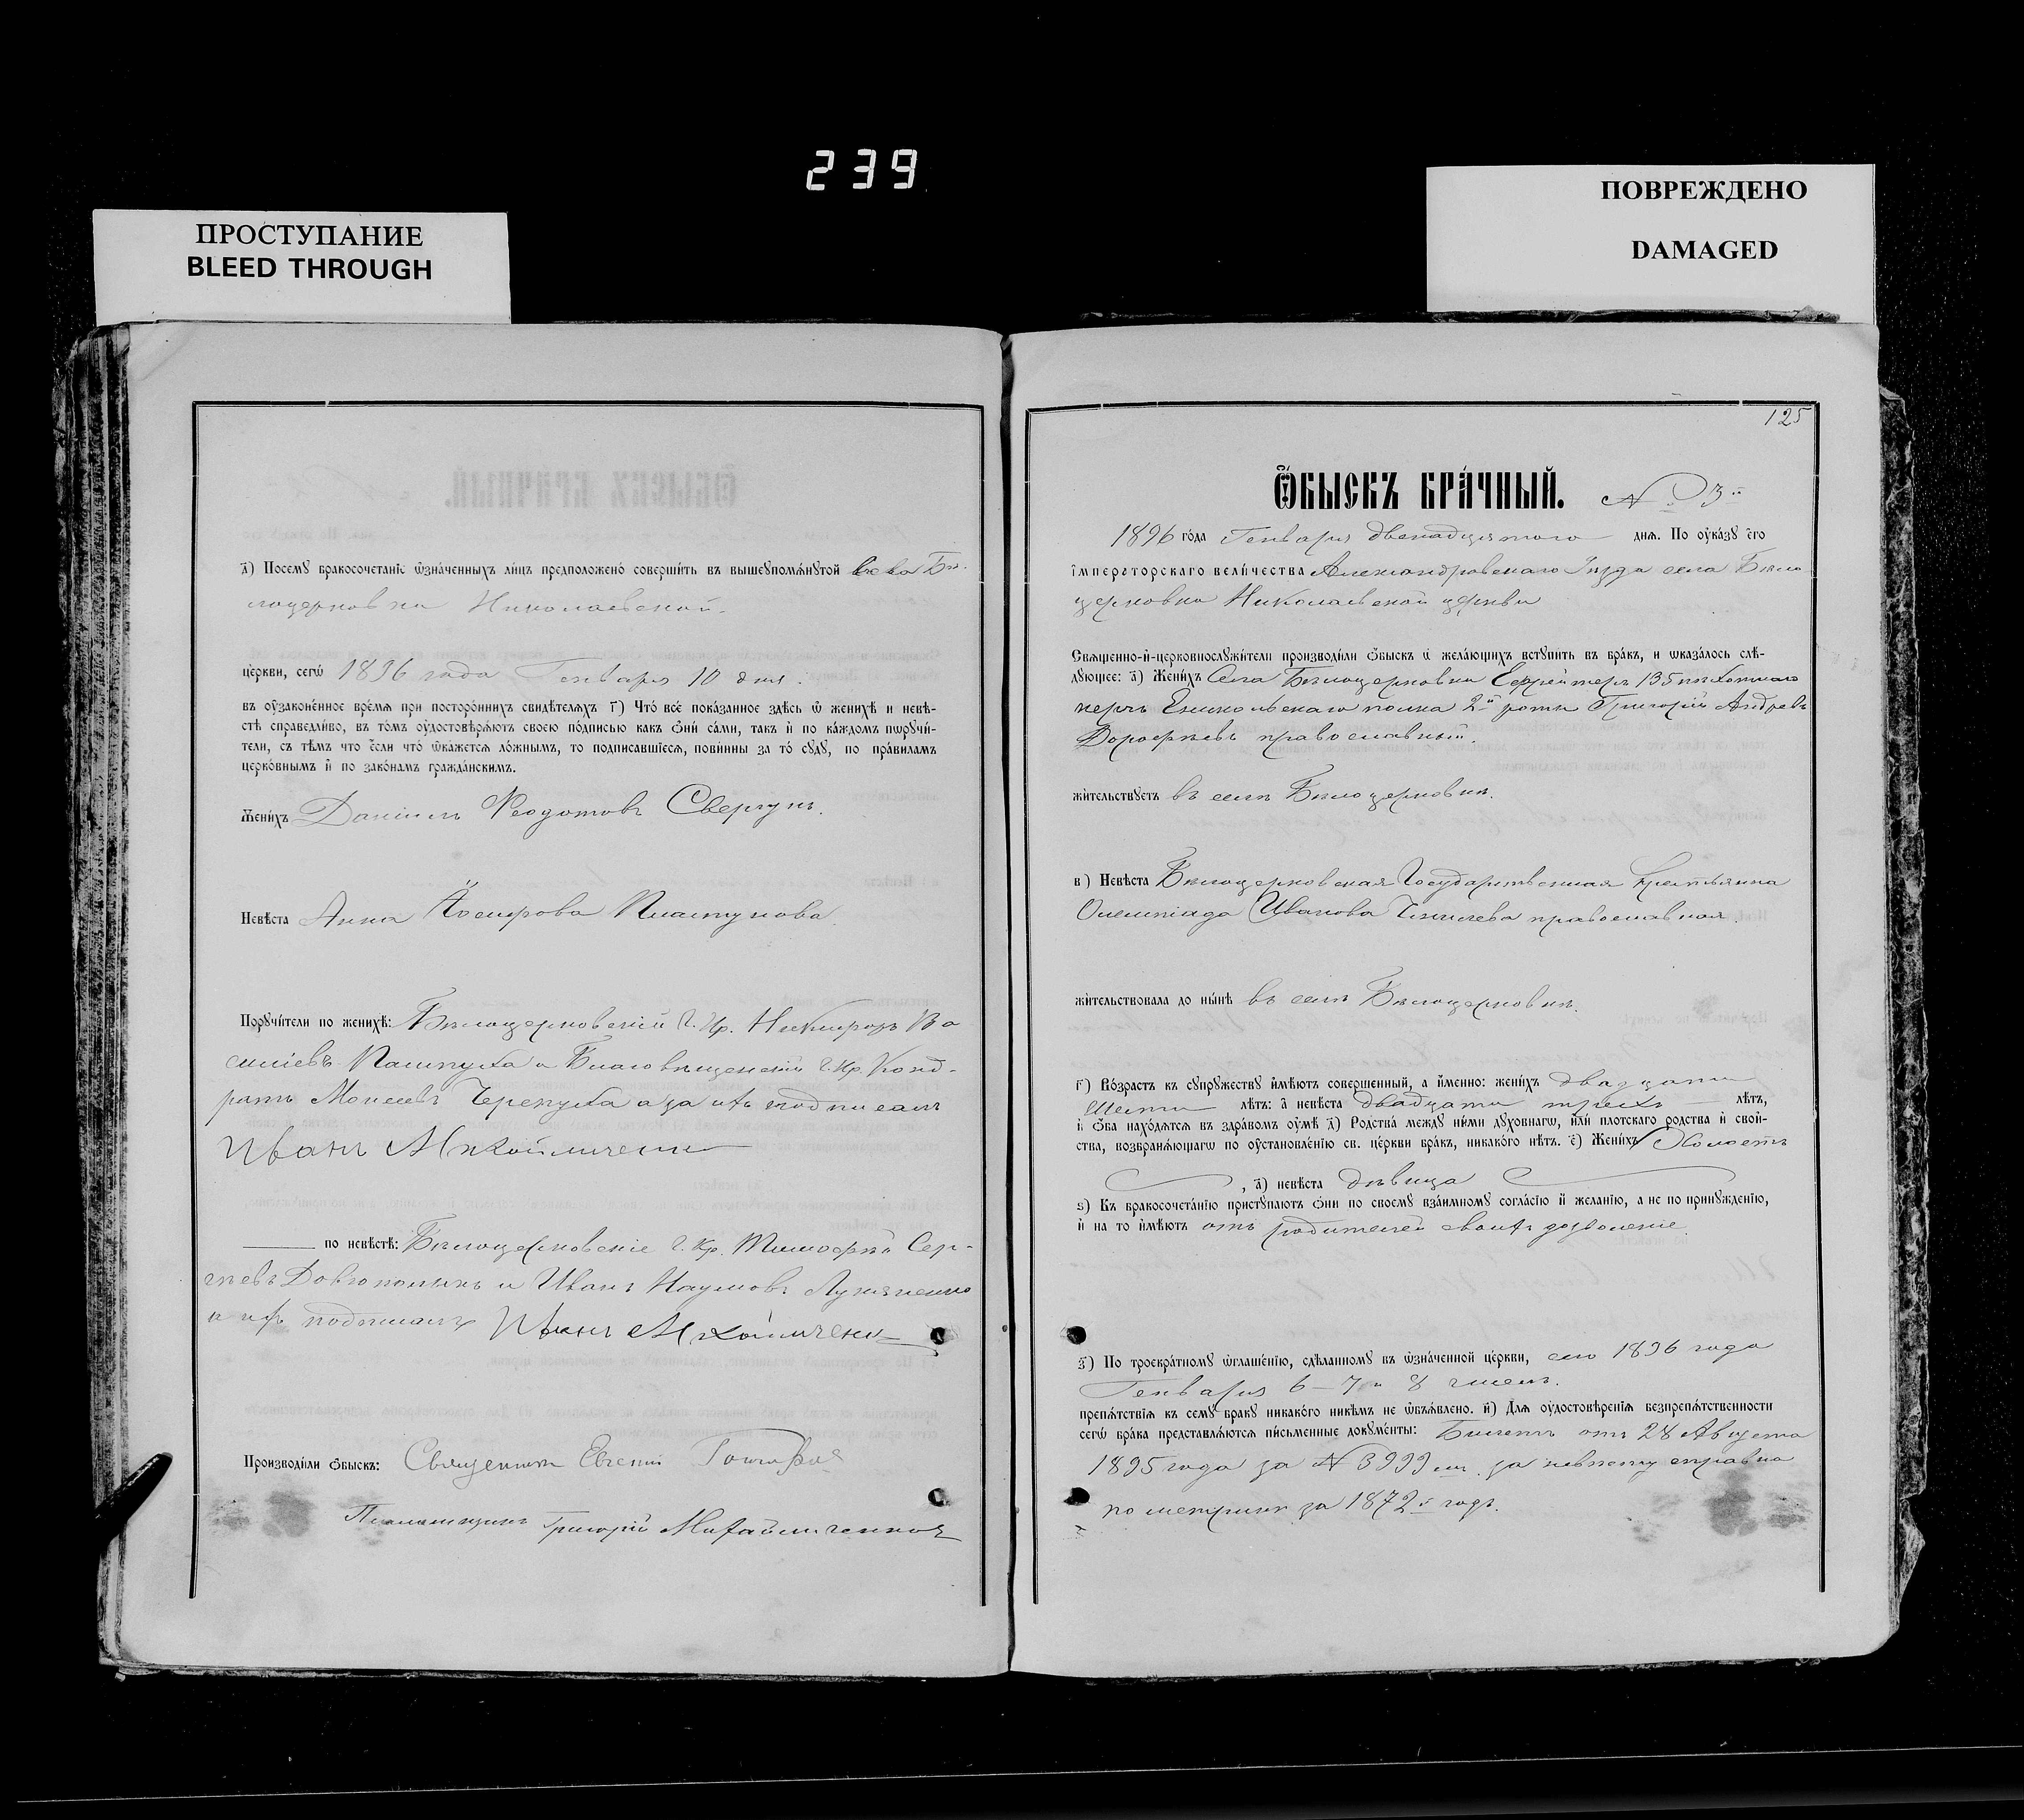 239
ПРОСТУПАНИЕ
BLEED THROUGH
ПОВРЕЖДЕНО
DAMAGED
д҃) Посемѹ бракосочетаніе ѡзначенныхъ лицъ предположено совершить въ вышеупомянутой села Бѣ-
лоцерковки Николаевской.
церкви, сегѡ 1896 года Генваря 10 дня.
въ ѹзаконенное время при постороннихъ свидѣтеляхъ г҃) Что все показанное здѣсь ѡ женихѣ и невѣ-
стѣ справедливо, въ томъ ѹдостовѣряютъ своею подписью какъ ѻни сами, такъ и по каждомъ пѡрѹчи-
тели, съ тѣмъ что если что ѡкажется ложнымъ, то подписавшіеся, повинны за то сѹдѹ, по правиламъ
церковнымъ и по законамъ гражданскимъ.
Женихъ Даніилъ Ѳеодотовъ Свергунъ.
Невѣста Анна Іосифова Пластунова.
Порѹчители по женихѣ: Бѣлоцерковскій Г. Кр. Никифоръ Ва
силіевъ и Благовѣщенскій Г. Кр. Конд-
ратъ Моисеевъ Черепуха а за ихъ подписалъ
Иванъ Михайличенко
по невѣстѣ: Бѣлоцерковскіе Г. Кр. Тимофей Сер-
геевъ Довгополыкъ и Иванъ Наумовъ Лукяненко
а ихъ подписалъ Иванъ Михайличенко
Производили ѻбыскъ: Священникъ Евгеній
Псаломщикъ Григорій Михайличенков
125
Ѻбыскъ брачный. № 3й
1896 года Генваря двенадцятого дня. По ѹказѹ егѡ
імператорскаго величества Александровскаго Уѣзда села Бѣло
церковки Николаевской церкви
Священно-и-церковнослѹжители производили ѻбыскъ ѡ желающихъ встѹпить въ бракъ, и ѡказалось слѣ-
дѹющее: а҃) Женихъ Села Бѣлоцерковки Ефрейторъ 135 пѣхотнаго
керчъ Еникольскаго полка 2й роты Григорій Андреевъ
Дорофѣевъ православный.
жительствѹетъ въ селѣ Бѣлоцерковкѣ.
в) Невѣста Бѣлоцерковская Государственная Крестьянка
Олимпіада Иванова православная.
жительствовала до нынѣ въ селѣ Бѣлоцерковкѣ.
г҃) Возрастъ къ сѹпрѹжествѹ имѣютъ совершенный, а именно: женихъ двадцати
шести лѣтъ: а невѣста двадцати трехъ лѣтъ,
и ѻба находятся въ здравомъ ѹмѣ д҃) Родства междѹ ними дѹховнагѡ, или плотскаго родства и свой-
ства, возбраняющагѡ по ѹстановленію св. церкви бракъ, никакого нѣтъ. е҃) Женихъ Холостъ
, а҃) невѣста дѣвица
ѕ) Къ бракосочетанію пристѹпаютъ ѻни по своемѹ взаимномѹ согласію и желанію, а не по принѹжденію,
и на то имѣютъ отъ родителей своихъ дозволеніе.
з҃) По троекратномѹ ѡглашенію, сдѣланномѹ въ ѡзначенной церкви, сего 1896 года
Генваря 6 - 7 и 8 чиселъ.
препятствія къ семѹ бракѹ никакого никѣмъ не ѡбъявлено. и҃) Для ѹдостовѣренія безпрепятственности
сегѡ брака представляются письменные докѹменты: Билетъ отъ 28 Августа
1895 года за № 3999 за невѣсту справка
по метрикѣ за 1872й годъ.